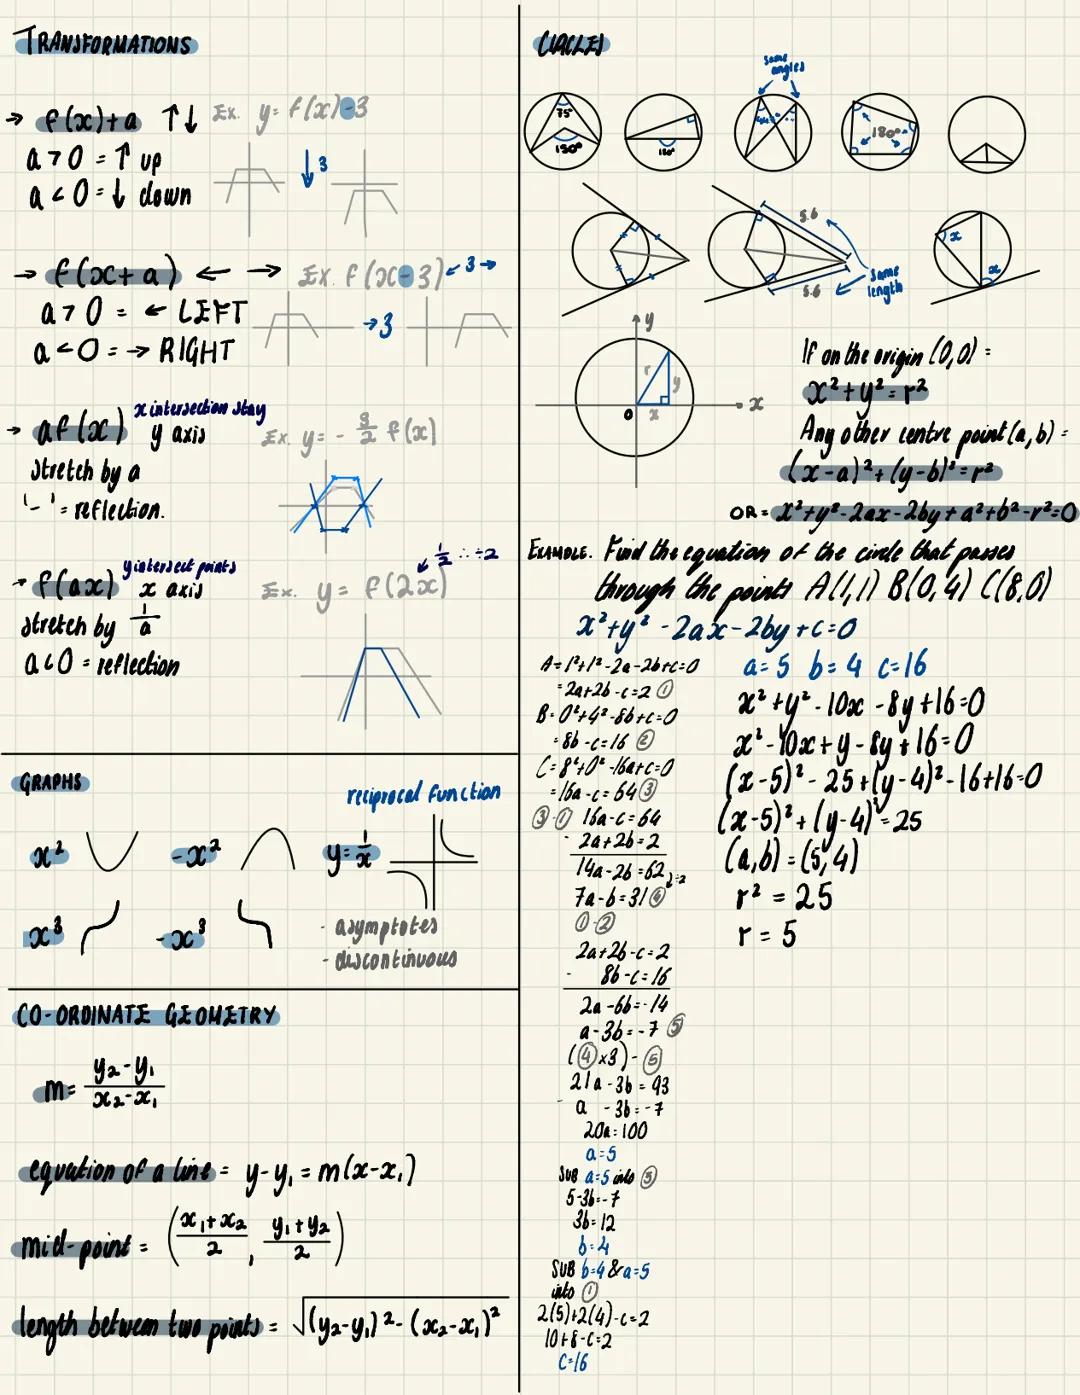 TRANSFORMATIONS
→ f(x)+a ↑↓ Ex. y= f(x)-3
a>0 = ↑ up
a<0 = ↓ down
↓3
→ f(x+a) ← → Ex. f(x-3) ←3→
a>0 = ← LEFT
a<0 = → RIGHT
→3
→ af(x) x intersection stay
y axis
Ex. y= - 3/2 f(x)
stretch by a
'-' = reflection.
→ f(ax) y intersect points
x axis
Ex. y= f(2x) 1/2 ∴ ÷2
stretch by 1/a
a<0 = reflection
GRAPHS
reciprocal function
x² -x² y= 1/x
x³ -x³
- asymptotes
- discontinuous
CO-ORDINATE GEOMETRY
m= (y₂-y₁)/(x₂-x₁)
equation of a line = y-y₁ = m(x-x₁)
mid-point = ((x₁+x₂)/2, (y₁+y₂)/2)
length between two points = √(y₂-y₁)²-(x₂-x₁)²
CIRCLES
same
angles
75°
150°
180°
180°
5.6
5.6
same
length
x
x
y
r
y
0
x
x
If on the origin (0,0) =
x²+y²=r²
Any other centre point (a,b) =
(x-a)²+(y-b)²=r²
OR = x²+y²-2ax-2by+a²+b²-r²=0
EXAMPLE. Find the equation of the circle that passes
through the points A(1,1) B(0,4) C(8,0)
x²+y²-2ax-2by+c=0
A=1²+1²-2a-2b+c=0
=2a+2b-c=2 ①
B=0²+4²-8b+c=0
=8b-c=16 ②
C=8²+0²-16a+c=0
=16a-c=64 ③
③-① 16a-c=64
- 2a+2b=2
14a-2b=62 ÷2
7a-b=31 ④
①-②
2a+2b-c=2
- 8b-c=16
2a-6b=-14
a-3b=-7 ⑤
(④×3)-⑤
21a-3b=93
- a -3b=-7
20a=100
a=5
SUB a=5 into ⑤
5-3b=-7
3b=12
b=4
SUB b=4 & a=5
into ①
2(5)+2(4)-c=2
10+8-c=2
c=16
a=5 b=4 c=16
x²+y²-10x-8y+16=0
x²-10x+y-8y+16=0
(x-5)²-25+(y-4)²-16+16=0
(x-5)²+(y-4)²=25
(a,b)=(5,4)
r²=25
r=5